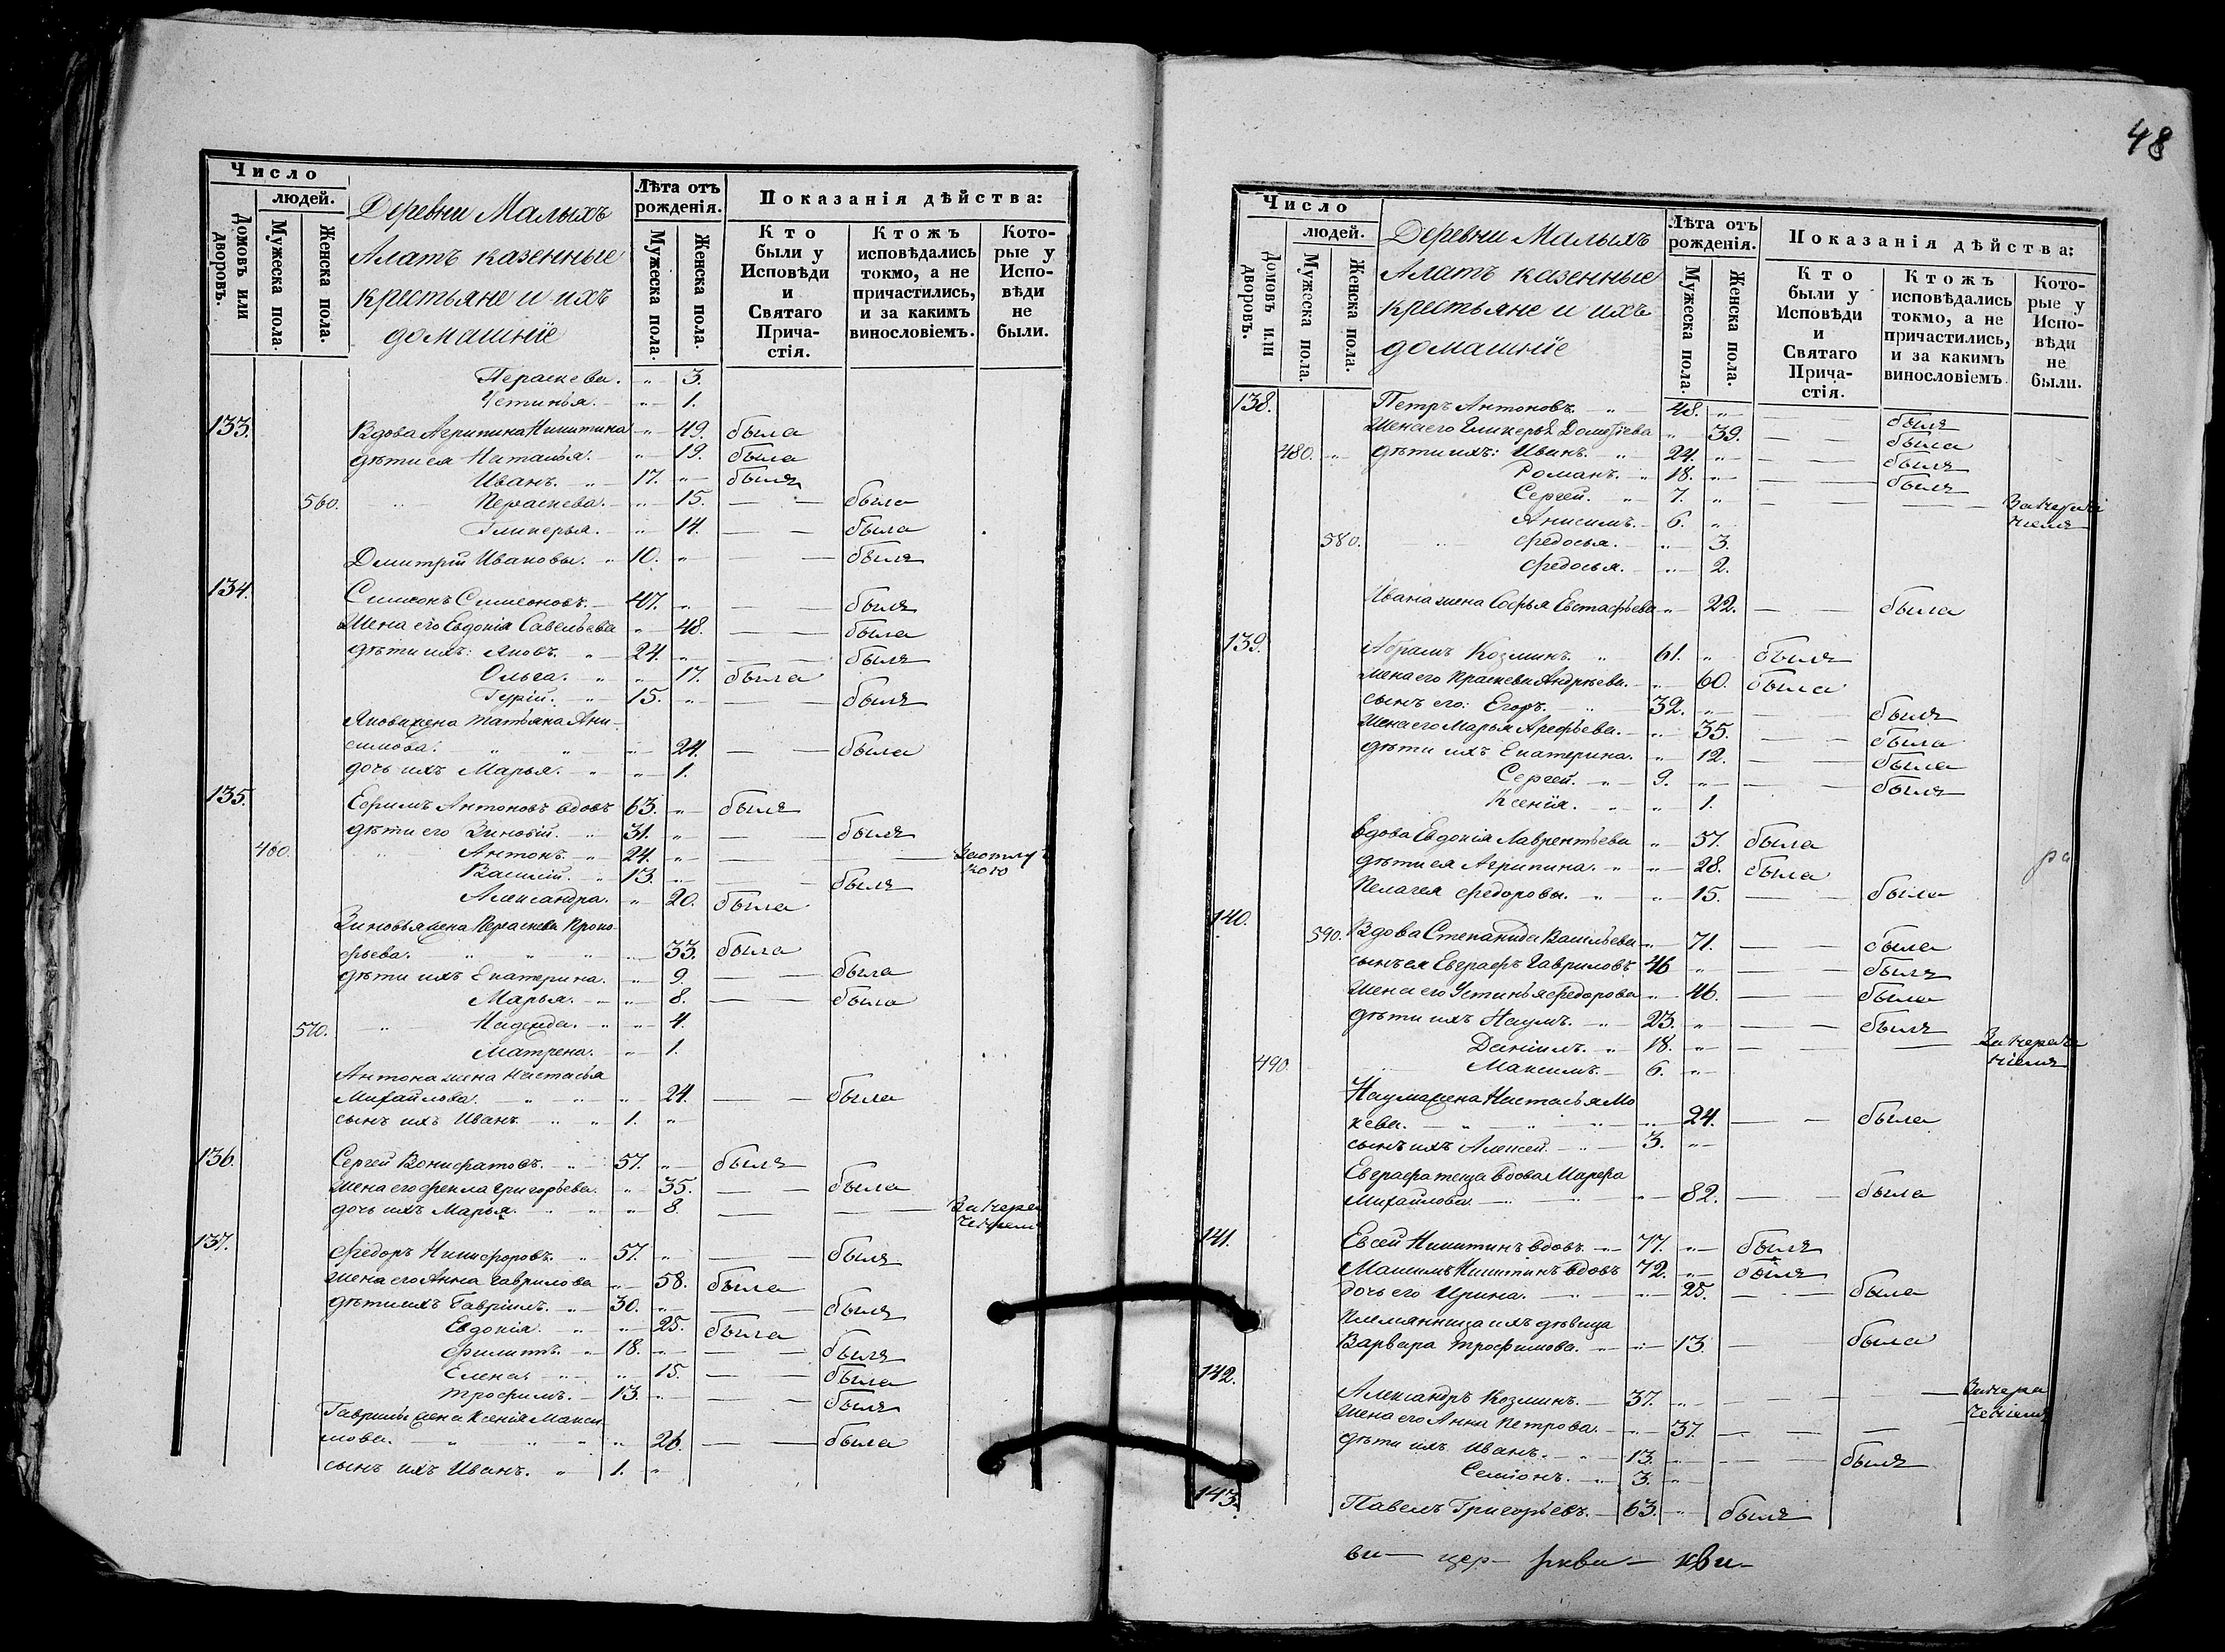 Число
людей.
Домовъ или дворовъ.
Мужеска пола.
Женска пола.
Деревни Малыхъ
Алатъ казенные
крестьяне и ихъ
домашніе
Лѣта отъ рожденія.
Мужеска пола.
Женска пола.
Показанія дѣйства:
Кто были у Исповѣди и Святаго Прича-стія.
Ктожъ исповѣдались токмо, а не причастились, и за какимъ винословіемъ.
Кото-рые у Испо-вѣди не были.
Параскева. 3.
Устинья. 1.
133. Вдова Агрипина Никитина 49. была
дѣти ея Наталья. 19. была
Иванъ. 17. былъ
560. Параскева. 15. была
Гликерья. 14. была
Дмитрій Ивановы. 10. былъ
134. Симеонъ Симеоновъ. 47. былъ
Жена его Евдокія Савельева 48. была
дѣти ихъ: Яковъ. 24. былъ
Ольга. 17. была
Гурій. 15. былъ
Якова жена Татьяна Ани-
симова. 24. была
дочь ихъ Марья. 1.
135. Ефимъ Антоновъ вдовъ 63. былъ
дѣти его Зиновій. 31. былъ
Антонъ. 24. За отлуч
кою
Василій. 13. былъ
Александра. 20. была
Зиновья жена Параскева Проко-
фьева. 33. была
дѣти ихъ Екатерина. 9. была
Марья. 8. была
570. Надежда. 4.
Матрена. 1.
Антона жена Настасья
Михайлова. 24. была
сынъ ихъ Иванъ. 1.
136. Сергей Вонифатовъ. 57. былъ
Жена его Фекла Григорьева. 35. была
дочь ихъ Марья. 8.
137. Федоръ Никифоровъ. 57. былъ
Жена его Анна Гаврилова 58. была
дѣти ихъ Гавріилъ. 30. былъ
Евдокія. 25. была
Филиппъ. 18. былъ
Елена. 15. была
Трофимъ. 13. былъ
Гавриила жена Ксенія Макси
мова. 26. была
сынъ ихъ Иванъ. 1.
48
Число
людей.
Домовъ или дворовъ.
Мужеска пола.
Женска пола.
Деревни Малыхъ
Алатъ казенные
крестьяне и ихъ
домашніе
Лѣта отъ рожденія.
Мужеска пола.
Женска пола.
Показанія дѣйства:
Кто были у Исповѣди и Святаго Прича-стія.
Ктожъ исповѣдались токмо, а не причастились, и за какимъ винословіемъ
Кото-рые у Испо-вѣди не были.
138. Петръ Антоновъ. 48. былъ
Жена его Гликерья 39. была
480. дѣти ихъ: Иванъ. 24. былъ
Романъ. 18. былъ
Сергей. 7.
Анисимъ. 6.
580. Федосья. 3.
Федосья. 2.
Ивана жена Софья Евстафьева 22. была
139. Абрамъ Козминъ. 61. былъ
Жена его Праскева Андреева. 60. была
сынъ его: Егоръ. 32. былъ
Жена его Марья Арефьева. 35. была
дѣти ихъ Екатерина. 12. была
Сергей. 9. былъ
Ксенія. 1.
Вдова Евдокія Лаврентьева 57. была
дѣти ея Агрипина. 28. была
Пелагея Федоровы. 15. была
140. 590. Вдова Степанида Васильева 71. была
сынъ ея Евграфъ Гавриловъ 46 былъ
Жена его Устинья Федорова 46. была
дѣти ихъ Наумъ. 23. былъ
Даніилъ. 18.
490. Максимъ. 6.
Наума жена Настасья Мо
кева. 24. была
сынъ ихъ Алексей. 3.
Евграфа теща вдова Марфа
Михайлова 82. была
141. Евсей Никитинъ вдовъ 77. былъ
Максимъ Никитинъ вдовъ 72. былъ
дочь его Ирина. 25. была
Племянница ихъ дѣвица
Варвара Трофимова. 13. была
142. Александръ Козминъ. 37.
Жена его Анна Петрова. 37.
дѣти ихъ Иванъ. 13. былъ
Семіонъ. 3.
143. Павелъ Григорьевъ. 63. былъ